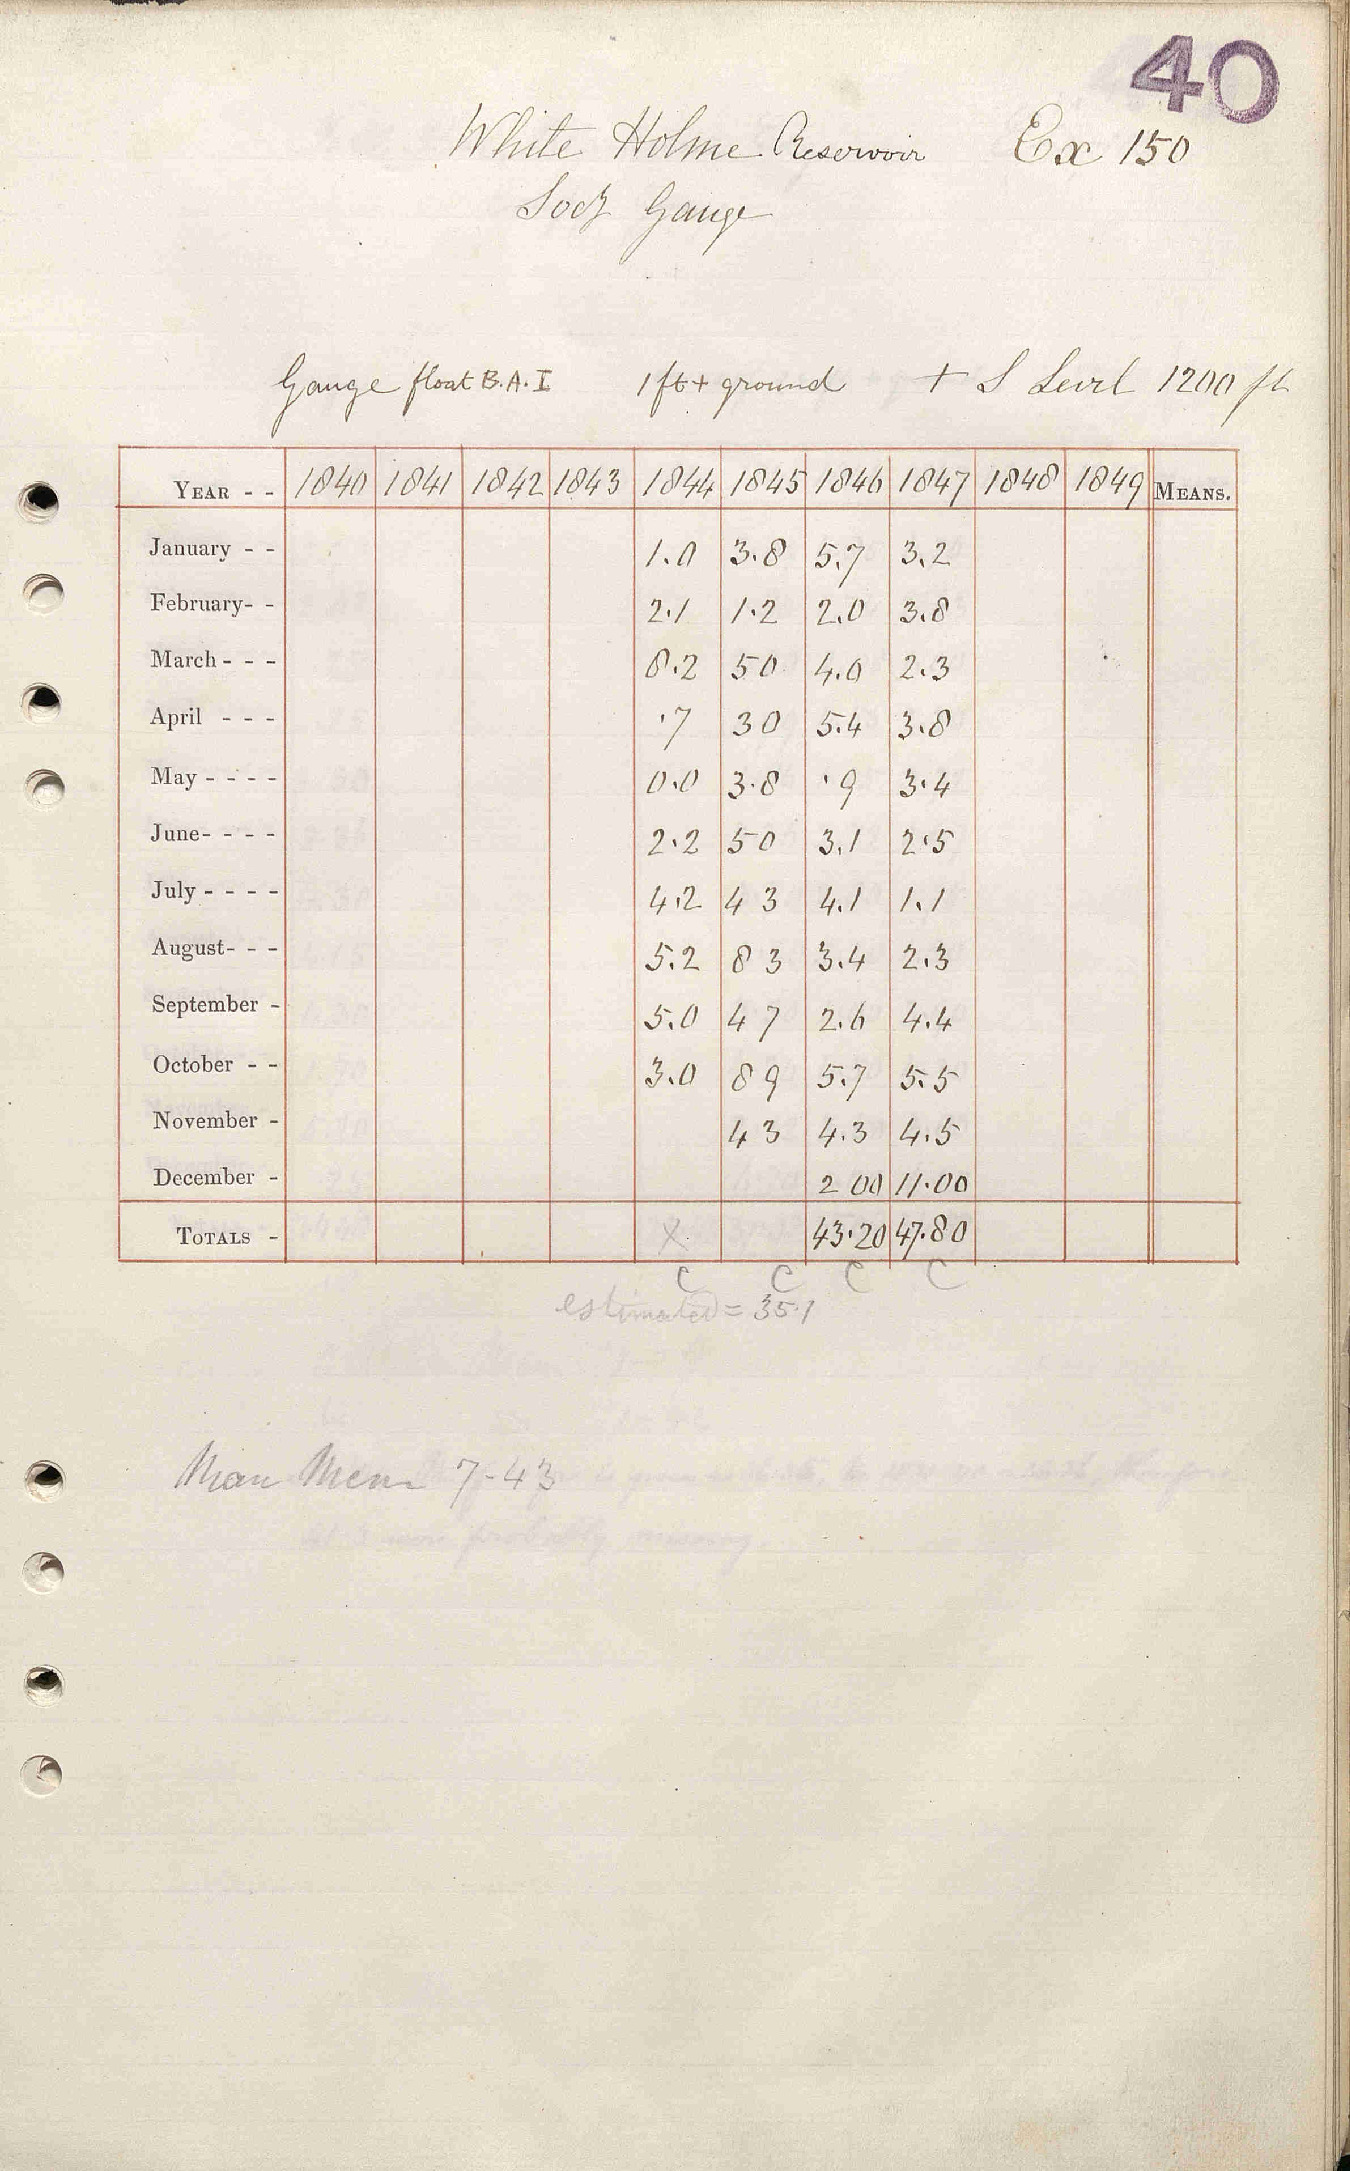 40
White Holme Reservoir Ex 150
Socy Gauge
Gauge float B.A.I 1ft + ground + S Level 1200 ft
YEAR - - 1840 1841 1842 1843 1844 1845 1846 1847 1848 1849 MEANS.
January - - 1.0 3.8 5.7 3.2
February- - 2.1 1.2 2.0 3.8
March - - - 8.2 50 4.0 2.3
April - - - .7 30 5.4 3.8
May - - - - 0.0 3.8 .9 3.4
June- - - - 2.2 50 3.1 2.5
July - - - - 4.2 43 4.1 1.1
August- - - 5.2 83 3.4 2.3
September - 5.0 47 2.6 4.4
October - - 3.0 89 5.7 5.5
November - 43 4.3 4.5
December - 2 00 11.00
TOTALS - X 43.20 47.80
C C C C
estimated = 35.1
Man Mem 7-43